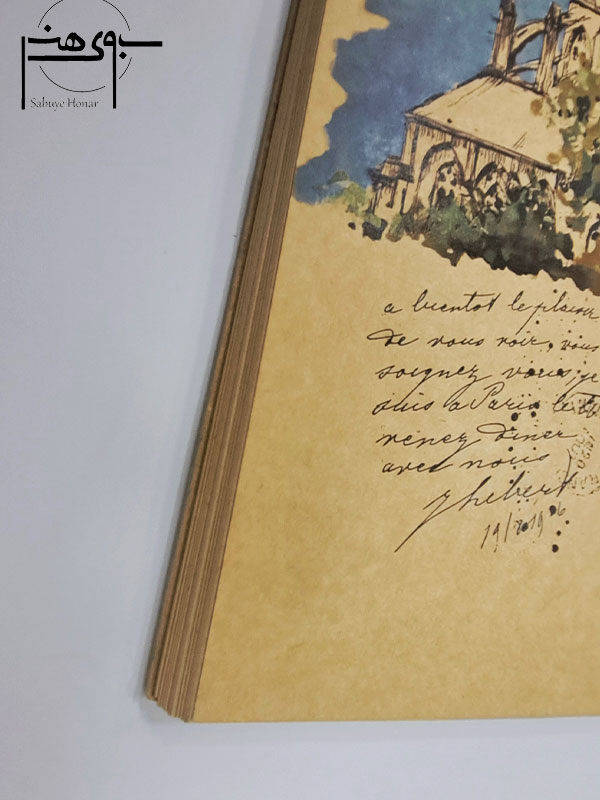 سبوی هنر
Sabuye Honar
a bientot le plaisir
de vous voir, vous
soignez vous, je
suis a Paris le
venez diner
avec nous